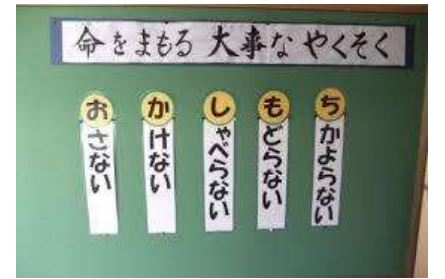 命をまもる 大事な やくそく
おさない
かけない
しゃべらない
もどらない
ちかよらない